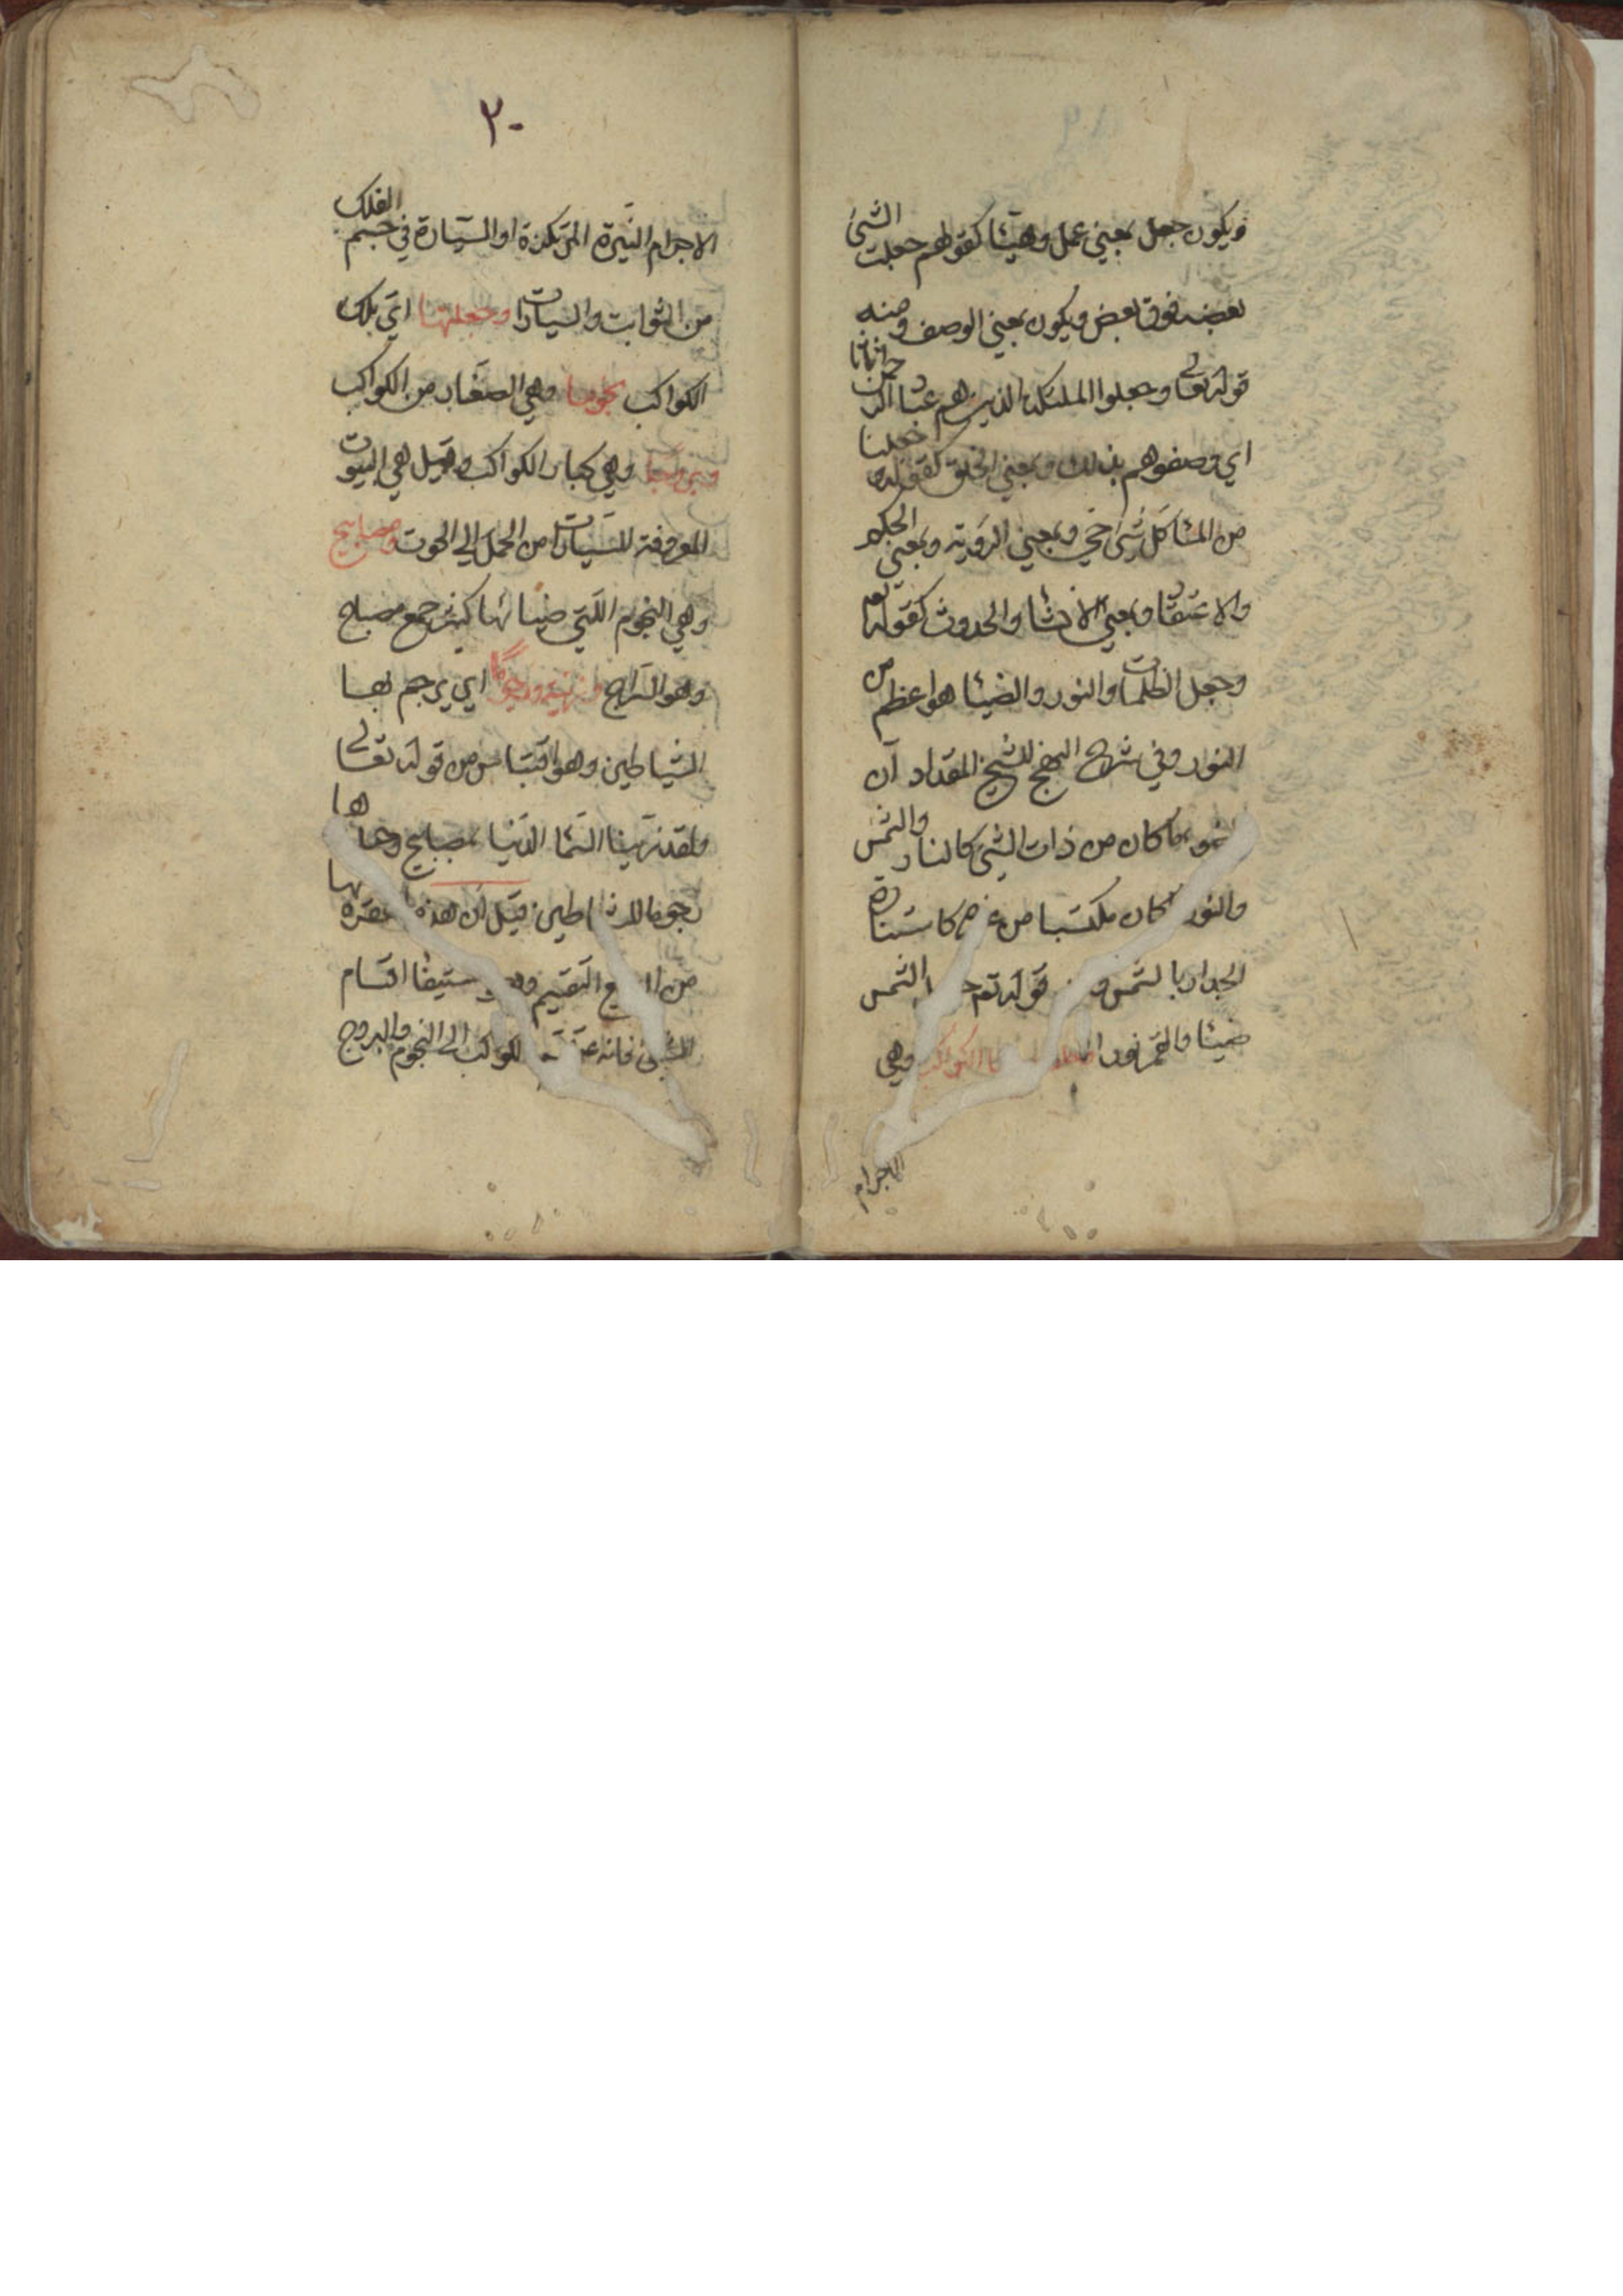 ويكون جعل بمعني عمل وهيئا كقولهم جعلت الشئ
بعضه فوق بعض ويكون بمعني الوصف ومنه
قوله تعالي وجعلوا الملئكة الذين هم عباد الرحمن اناثا
اي وصفوهم بذلك وبمعني الخلق كقوله جعلنا
من الماء كل شئ حي وبمعني الرؤية وبمعني الحكم
والاعتقاد وبمعني الانشا والحدوث كقوله تع
وجعل الظلمات والنور والضيا هو اعظم من
النور وفي شرح النهج للشيخ المقداد ان
الضوء ما كان من ذات الشئ كالنار والشمس
والنور كان مكتسبا من غيره كاستنارة
الجدار بالشمس قوله تع الشمس
ضيئا والقمر نورا الكواكب وهي
الاجرام
٢٠
الاجرام النيرة المرتكزة او السيارة في جسم الفلك
من الثوابت والسيارات وجعلتها اي تلك
الكواكب نجوما وهي الصغار من الكواكب
وبروجا وهي كبار الكواكب وقيل هي البيوت
المعروفة للسيارات من الحمل الي الحوت ومصابيح
وهي النجوم اللتي ضيائها كثير جمع مصباح
وهو السراج وزينة ورجوما اي يرجم بها
الشياطين وهو اقتباس من قوله تعالي
ولقد زينا السما الدنيا بمصابيح وجعلناها
رجوما للشياطين قيل ان هذه الفقرة بها
من التقسيم وهو استيفا اقسام
الشئ فانه الكواكب الي النجوم والبروج